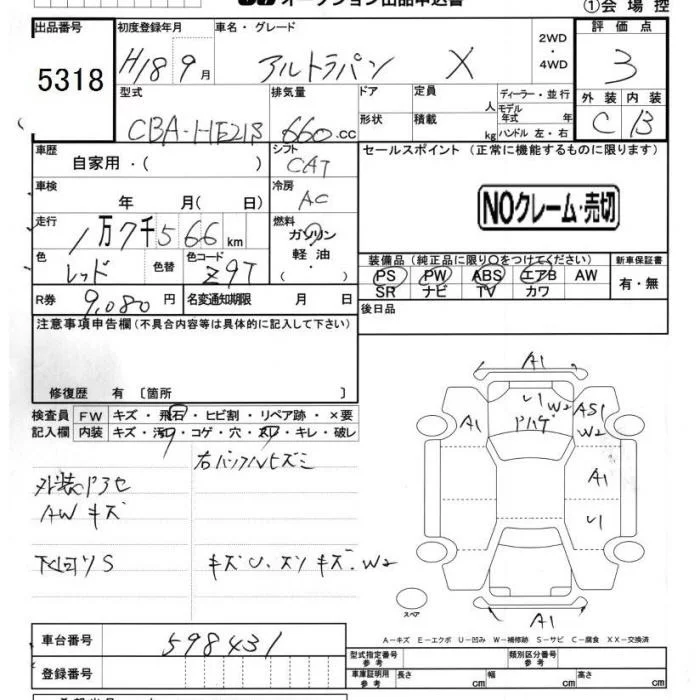 オークション出品申込書
①会場控
出品番号 初度登録年月 車名・グレード 2WD・4WD 評価点
5318 H18 9月 アルトラパン X 3
型式 排気量 ドア 定員 人 ディーラー・並行 外装 内装
CBA-HE21S 660.cc 形状 積載 kg モデル年式 年 ハンドル 左・右 C B
車歴 自家用・( ) シフト CAT セールスポイント (正常に機能するものに限ります)
車検 年 月( 日) 冷房 AC NOクレーム・売切
走行 1万7千566km 燃料 ガソリン
軽油・( )
色 レッド 色替 色コード Z9T 装備品(純正品に限り○をつけてください) 新車保証書
PS PW ABS エアB AW 有・無
SR ナビ TV カワ
R券 9,080円 名変通知期限 月 日 後日品
注意事項申告欄(不具合内容等は具体的に記入して下さい)
修復歴 有 〔箇所 〕
検査員 FW キズ・飛石・ヒビ割・リペア跡・×要
記入欄 内装 キズ・汚レ・コゲ・穴・スレ・キレ・破レ
外装
AW キズ
下回りS
A1
U1 W2
A1 AS1
W2
A1
U1
A1
スペア
A-キズ E-エクボ U-凹み W-補修跡 S-サビ C-腐食 XX-交換済
車台番号 598431 型式指定番号 参考 類別区分番号 参考
登録番号 車庫証明用 参考 長さ cm 幅 cm 高さ cm